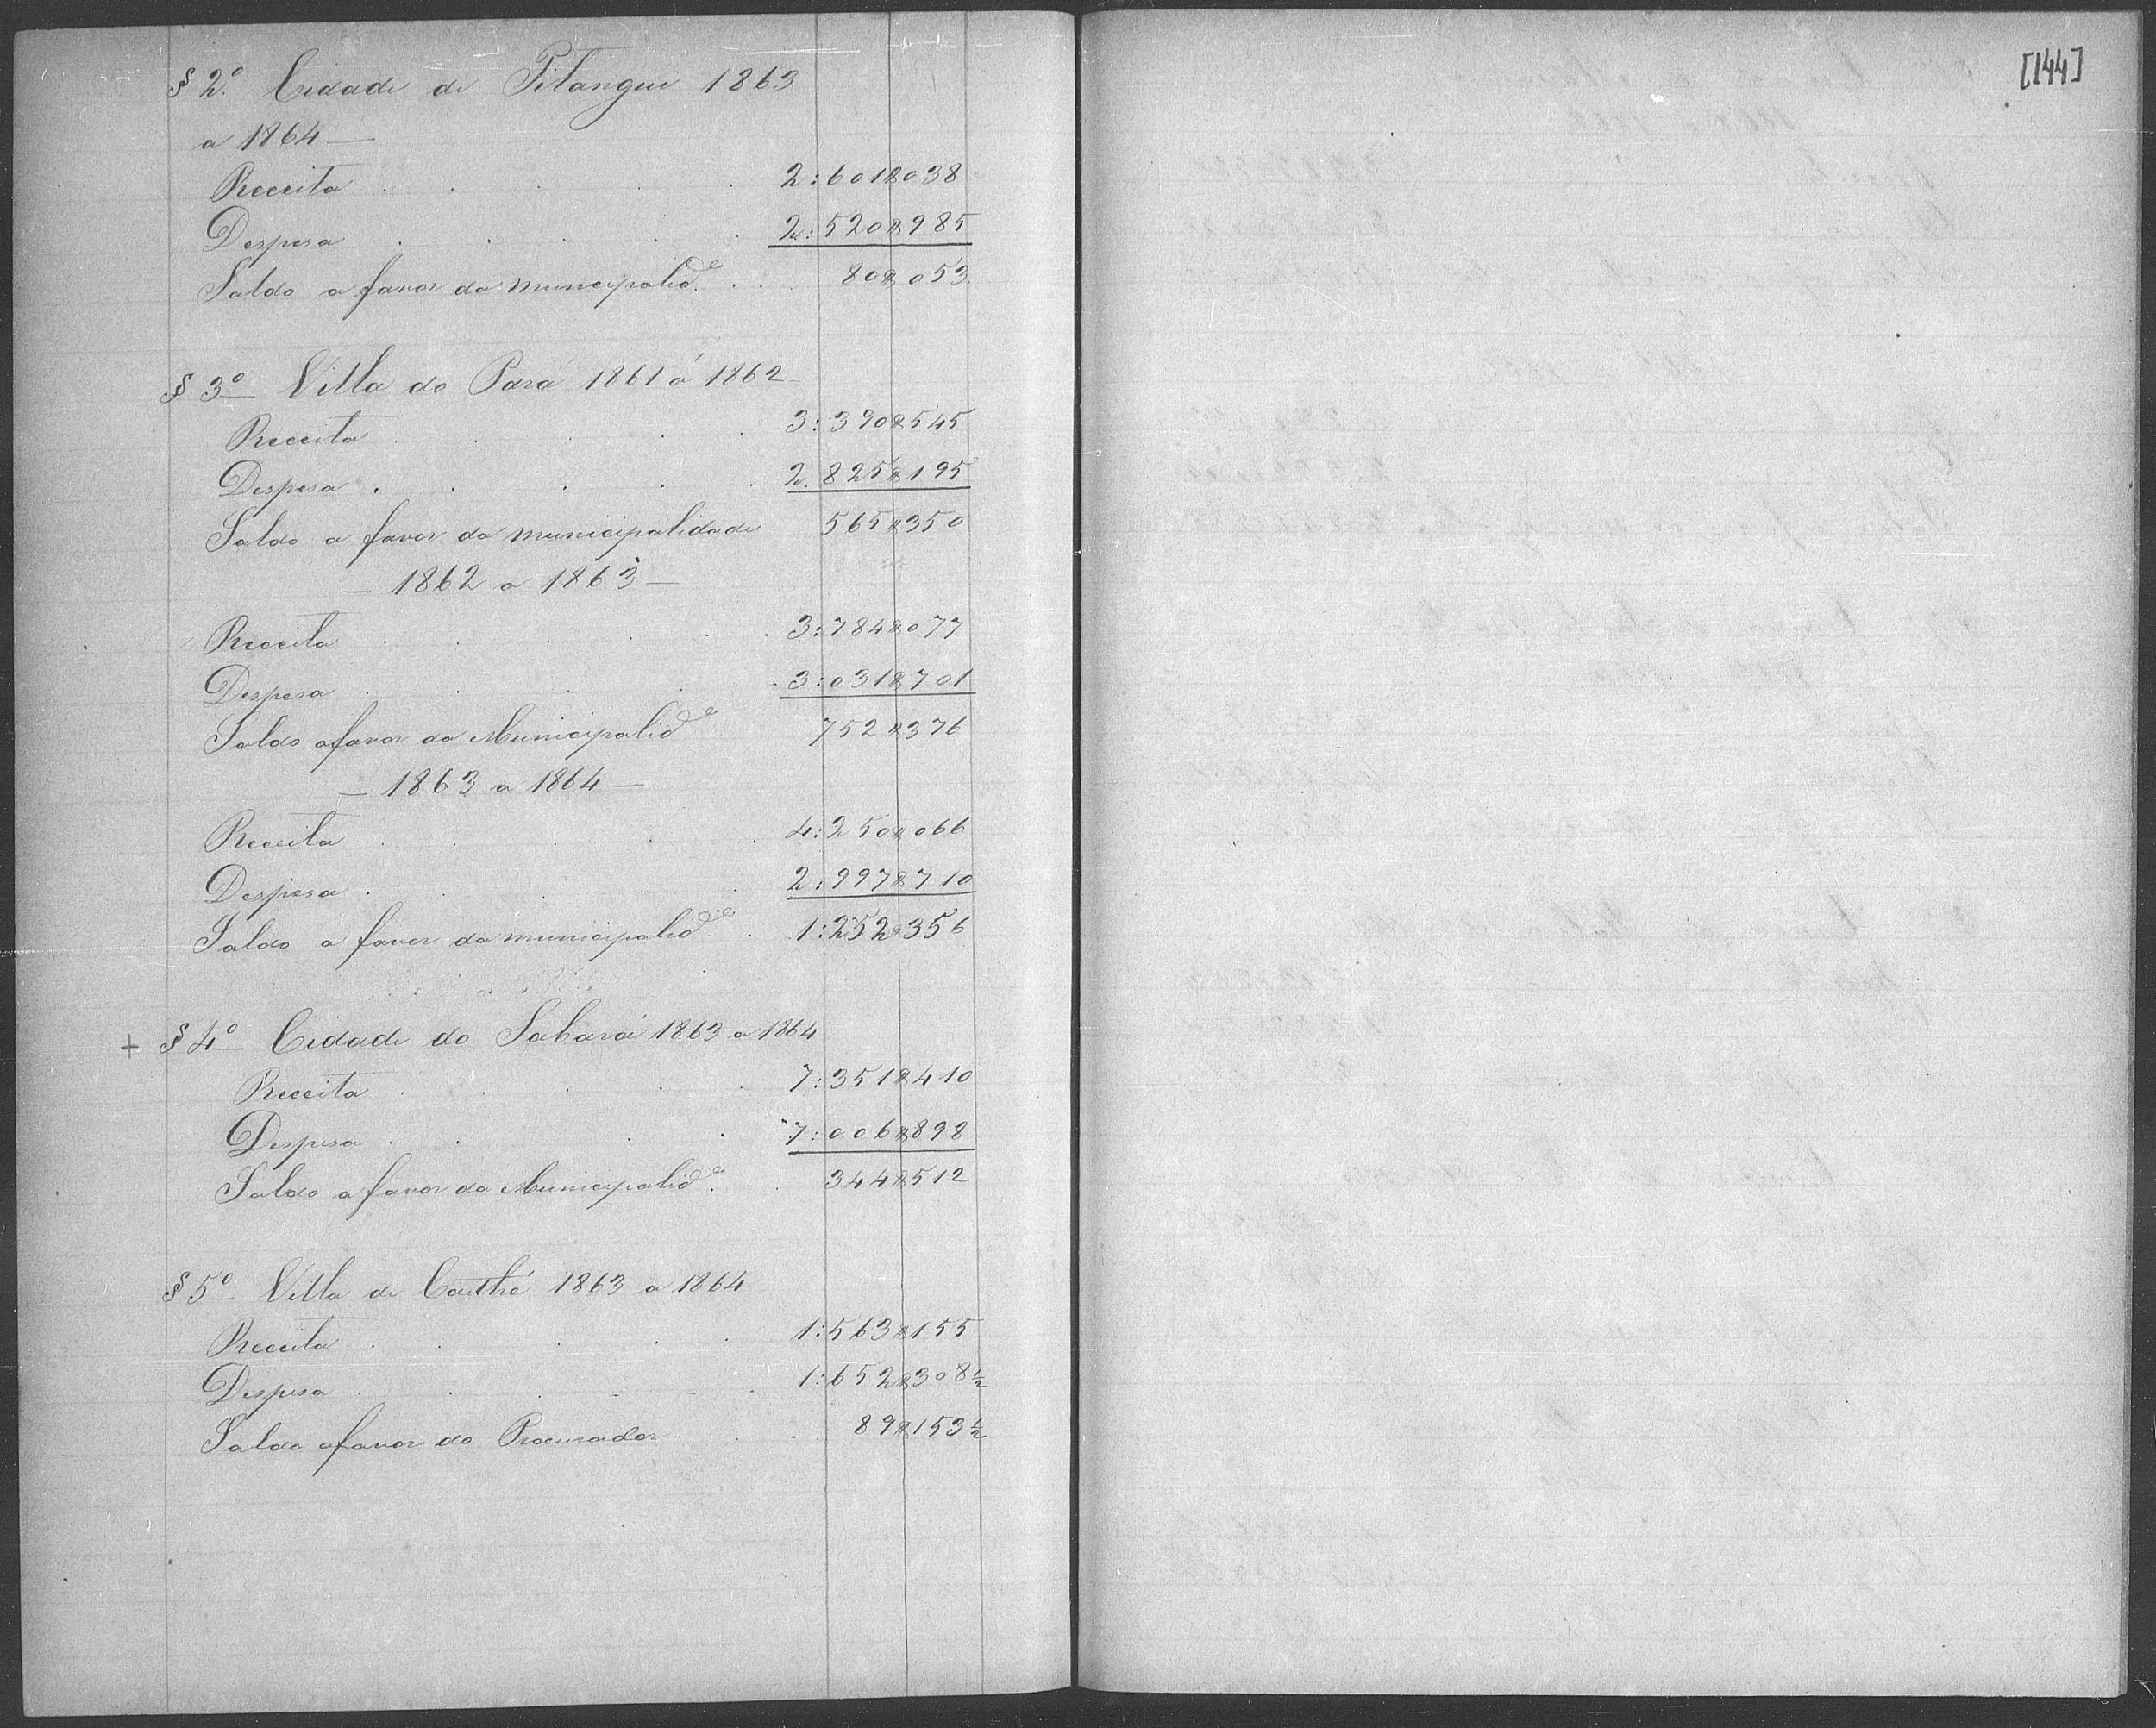 § 2º Cidade de Pitangui 1863
a 1864 —
Receita . . . . . 2:601$038
Despesa . . . . . 2:520$985
Saldo a favor da municipalidᵉ . . . 80$053
§ 3º Villa do Pará 1861 á 1862
Receita . . . . . 3:390$545
Despesa . . . . . 2.825$195
Saldo a favor da municipalidade 565$350
— 1862 a 1863 —
Receita . . . . . 3:784$077
Despesa . . . . . 3:031$701
Saldo a favor da Municipalidᵉ 752$376
— 1863 a 1864 —
Receita . . . . . 4:250$066
Despesa . . . . . 2:997$710
Saldo a favor da municipalidᵉ . 1:252$356
+ § 4º Cidade do Sabará 1863 a 1864
Receita . . . . . 7:351$410
Despesa . . . . . 7:006$898
Saldo a favor da Municipalidᵉ . . . 344$512
§ 5º Villa de Caethé 1863 a 1864
Receita . . . . . 1:563$155
Despesa . . . . . 1:652$308½
Saldo a favor do Procurador . . . 89$153½
[144]